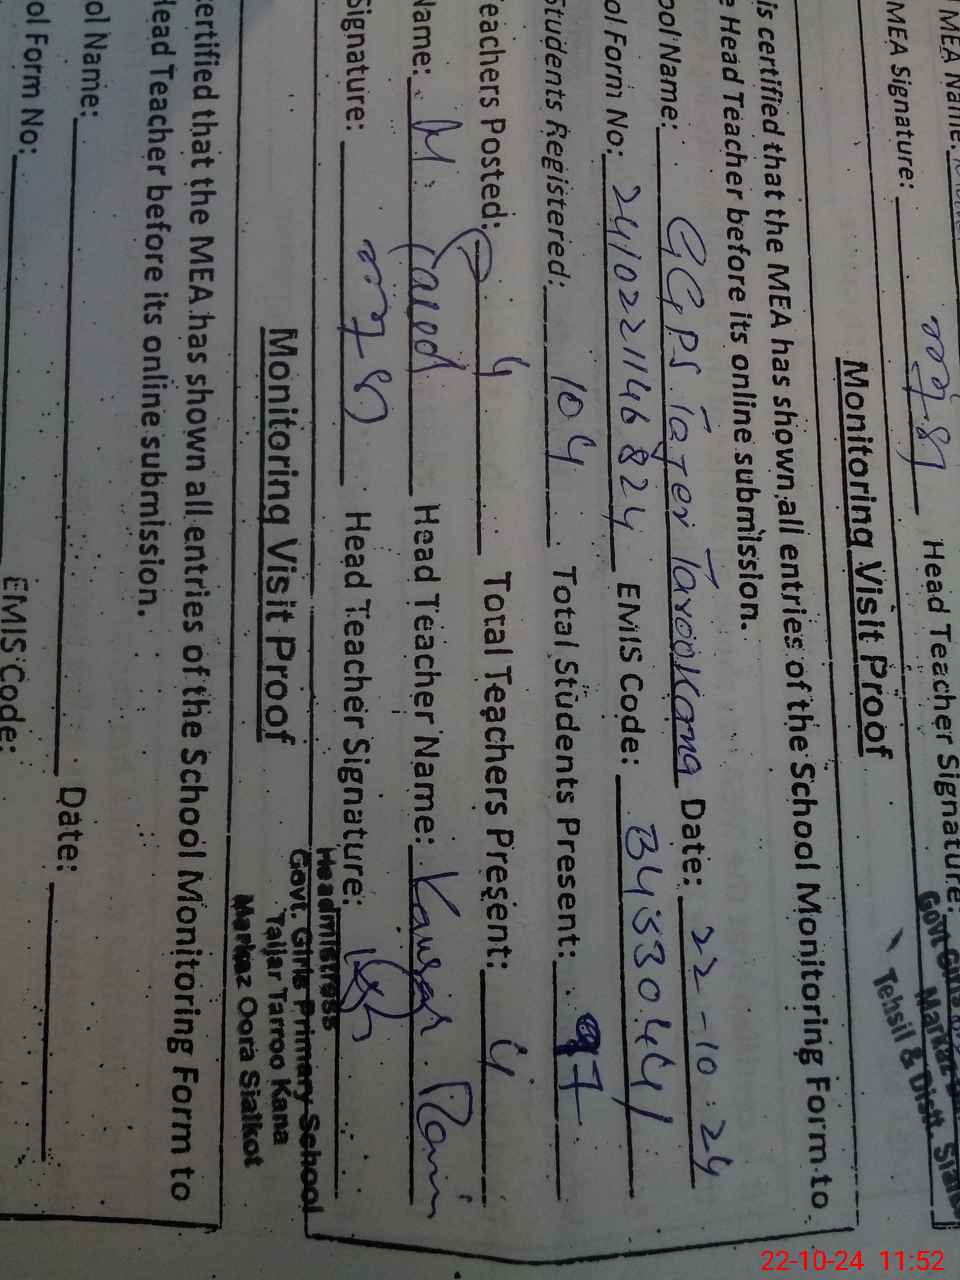 MEA Name:
MEA Signature: Head Teacher Signature:
Govt Girls
Markaz
Tehsil & Distt. Sialkot
Monitoring Visit Proof
is certified that the MEA has shown all entries of the School Monitoring Form to
Head Teacher before its online submission.
ool Name: GGPS Tajer Tarookana Date: 22-10-24
ol Form No: 2410221146824 EMIS Code: 34330441
Students Registered: 104 Total Students Present: 97
eachers Posted: 4 Total Teachers Present: 4
Name: M. Saeed Head Teacher Name: Kausar
Signature: Head Teacher Signature:
Headmistress
Govt. Girls Primary School
Tajjar Tarroo Kana
Markaz Oora Sialkot
Monitoring Visit Proof
ertified that the MEA has shown all entries of the School Monitoring Form to
Head Teacher before its online submission.
ol Name: Date:
ol Form No: EMIS Code:
22-10-24 11:52